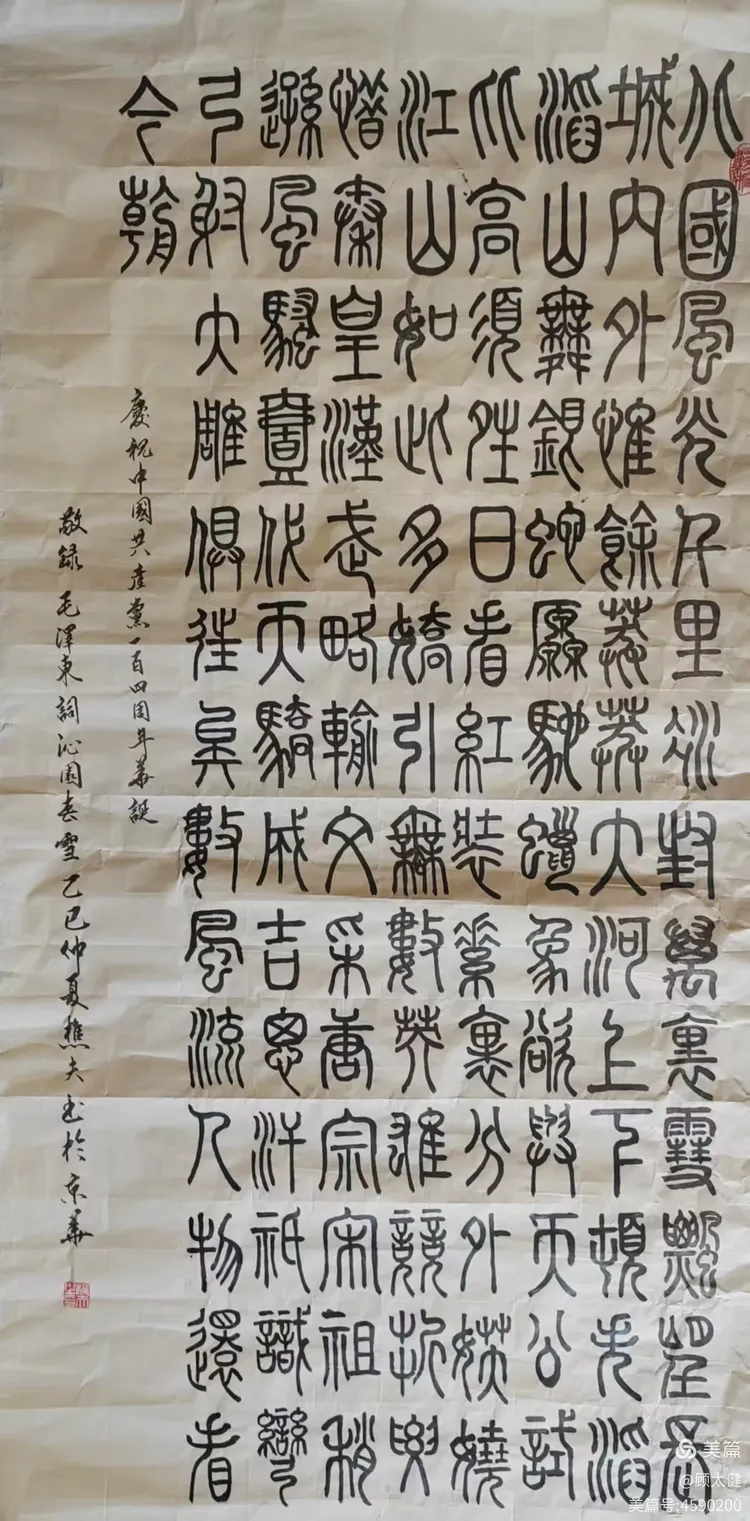 北國風光千里冰封萬裏雪飄望長
城內外惟餘莽莽大河上下頓失滔
滔山舞銀蛇原馳蠟象欲與天公試
比高須晴日看紅裝素裹分外妖嬈
江山如此多嬌引無數英雄競折腰
惜秦皇漢武略輸文采唐宗宋祖稍
遜風騷壹代天驕成吉思汗祇識彎
弓射大雕俱往矣數風流人物還看
今朝
慶祝中國共產黨一百四周年華誕
敬錄毛澤東詞沁園春雪乙巳仲夏樵夫書於京華
美篇
@顾太健
美篇号:4590200